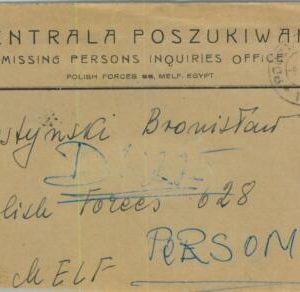 ENTRALA POSZUKIWA
MISSING PERSONS INQUIRIES OFFICE
POLISH FORCES 88, MELF. EGYPT
styński Bronisław
lish Forces 628
PERSON
MELF